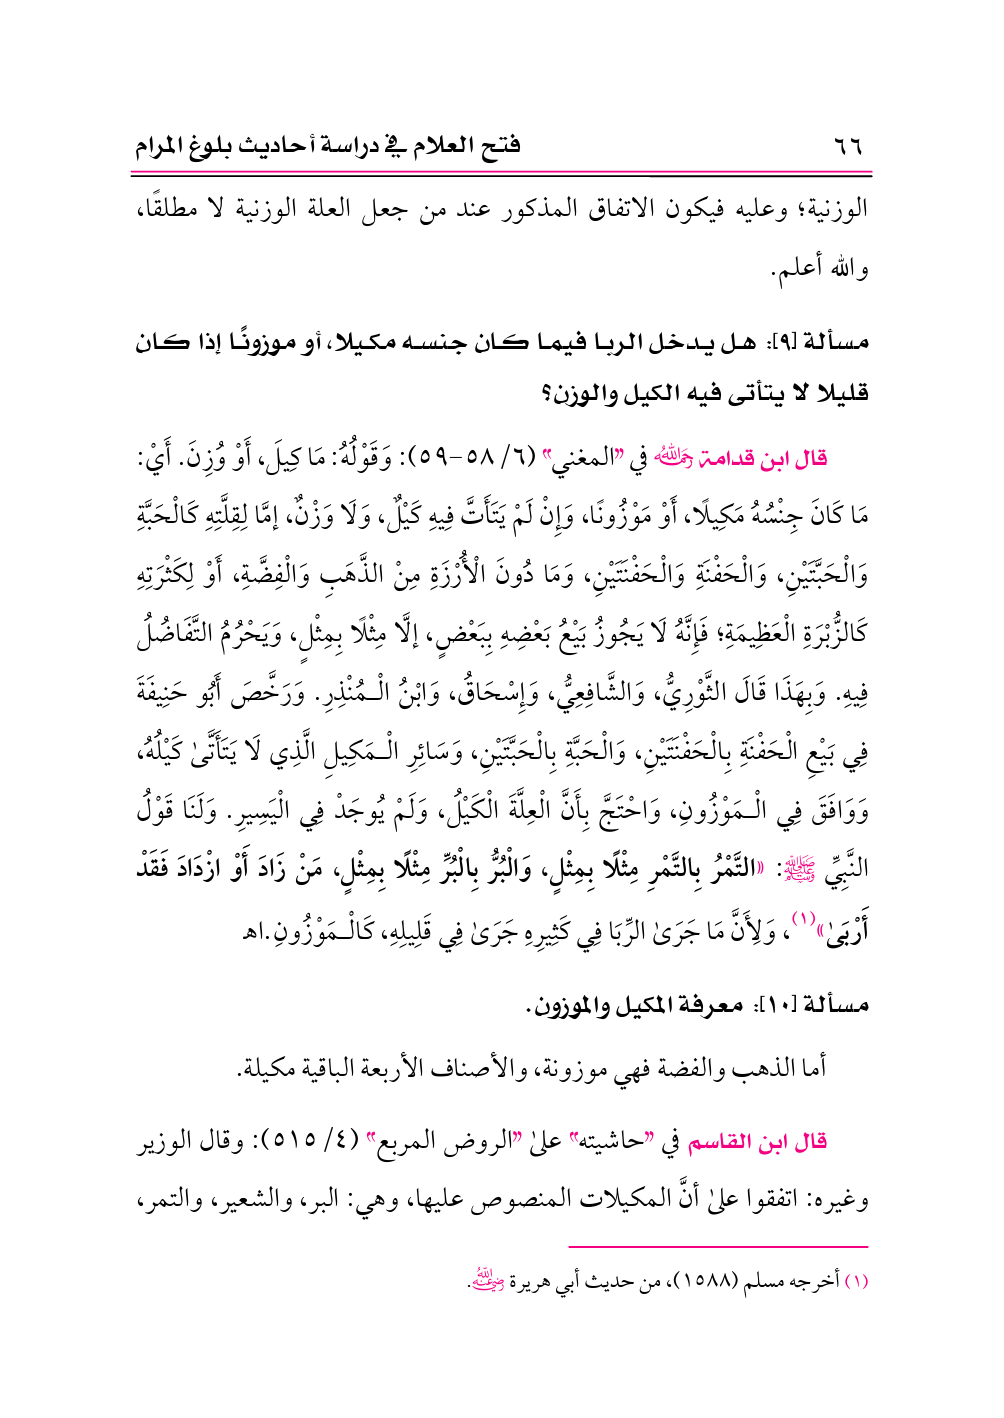 ٦٦ فتح العلام في دراسة أحاديث بلوغ المرام
الوزنية؛ وعليه فيكون الاتفاق المذكور عند من جعل العلة الوزنية لا مطلقًا،
والله أعلم.
مسألة [٩]: هل يدخل الربا فيما كان جنسه مكيلا، أو موزونًا إذا كان
قليلا لا يتأتى فيه الكيل والوزن؟
قال ابن قدامة رَحِمَهُ اللهُ في "المغني" (٦/ ٥٨-٥٩): وَقَوْلُهُ: مَا كِيلَ، أَوْ وُزِنَ. أَيْ:
مَا كَانَ جِنْسُهُ مَكِيلًا، أَوْ مَوْزُونًا، وَإِنْ لَمْ يَتَأَتَّ فِيهِ كَيْلٌ، وَلَا وَزْنٌ، إمَّا لِقِلَّتِهِ كَالْحَبَّةِ
وَالْحَبَّتَيْنِ، وَالْحَفْنَةِ وَالْحَفْنَتَيْنِ، وَمَا دُونَ الْأُرْزَةِ مِنْ الذَّهَبِ وَالْفِضَّةِ، أَوْ لِكَثْرَتِهِ
كَالزُّبْرَةِ الْعَظِيمَةِ؛ فَإِنَّهُ لَا يَجُوزُ بَيْعُ بَعْضِهِ بِبَعْضٍ، إلَّا مِثْلًا بِمِثْلٍ، وَيَحْرُمُ التَّفَاضُلُ
فِيهِ. وَبِهَذَا قَالَ الثَّوْرِيُّ، وَالشَّافِعِيُّ، وَإِسْحَاقُ، وَابْنُ الْـمُنْذِرِ. وَرَخَّصَ أَبُو حَنِيفَةَ
فِي بَيْعِ الْحَفْنَةِ بِالْحَفْنَتَيْنِ، وَالْحَبَّةِ بِالْحَبَّتَيْنِ، وَسَائِرِ الْـمَكِيلِ الَّذِي لَا يَتَأَتَّىٰ كَيْلُهُ،
وَوَافَقَ فِي الْـمَوْزُونِ، وَاحْتَجَّ بِأَنَّ الْعِلَّةَ الْكَيْلُ، وَلَمْ يُوجَدْ فِي الْيَسِيرِ. وَلَنَا قَوْلُ
النَّبِيِّ ﷺ: «التَّمْرُ بِالتَّمْرِ مِثْلًا بِمِثْلٍ، وَالْبُرُّ بِالْبُرِّ مِثْلًا بِمِثْلٍ، مَنْ زَادَ أَوْ ازْدَادَ فَقَدْ
أَرْبَىٰ»(١)، وَلِأَنَّ مَا جَرَىٰ الرِّبَا فِي كَثِيرِهِ جَرَىٰ فِي قَلِيلِهِ، كَالْـمَوْزُونِ.اهـ
مسألة [١٠]: معرفة المكيل والموزون.
أما الذهب والفضة فهي موزونة، والأصناف الأربعة الباقية مكيلة.
قال ابن القاسم في "حاشيته" علىٰ "الروض المربع" (٤/ ٥١٥): وقال الوزير
وغيره: اتفقوا علىٰ أنَّ المكيلات المنصوص عليها، وهي: البر، والشعير، والتمر،
(١) أخرجه مسلم (١٥٨٨)، من حديث أبي هريرة رضي الله عنه.